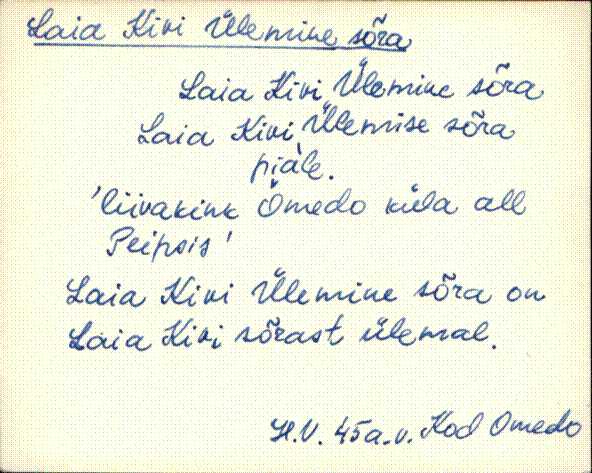 Laia Kivi Ülemine sõra
Laia Kivi Ülemine sõra
Laia Kivi Ülemise sõra
piäle.
'liivakink Omedo küla all
Peipsis'
Laia Kivi Ülemine sõra on
Laia Kivi sõrast ülemal.
H.V. 45a.v. Kod Omedo